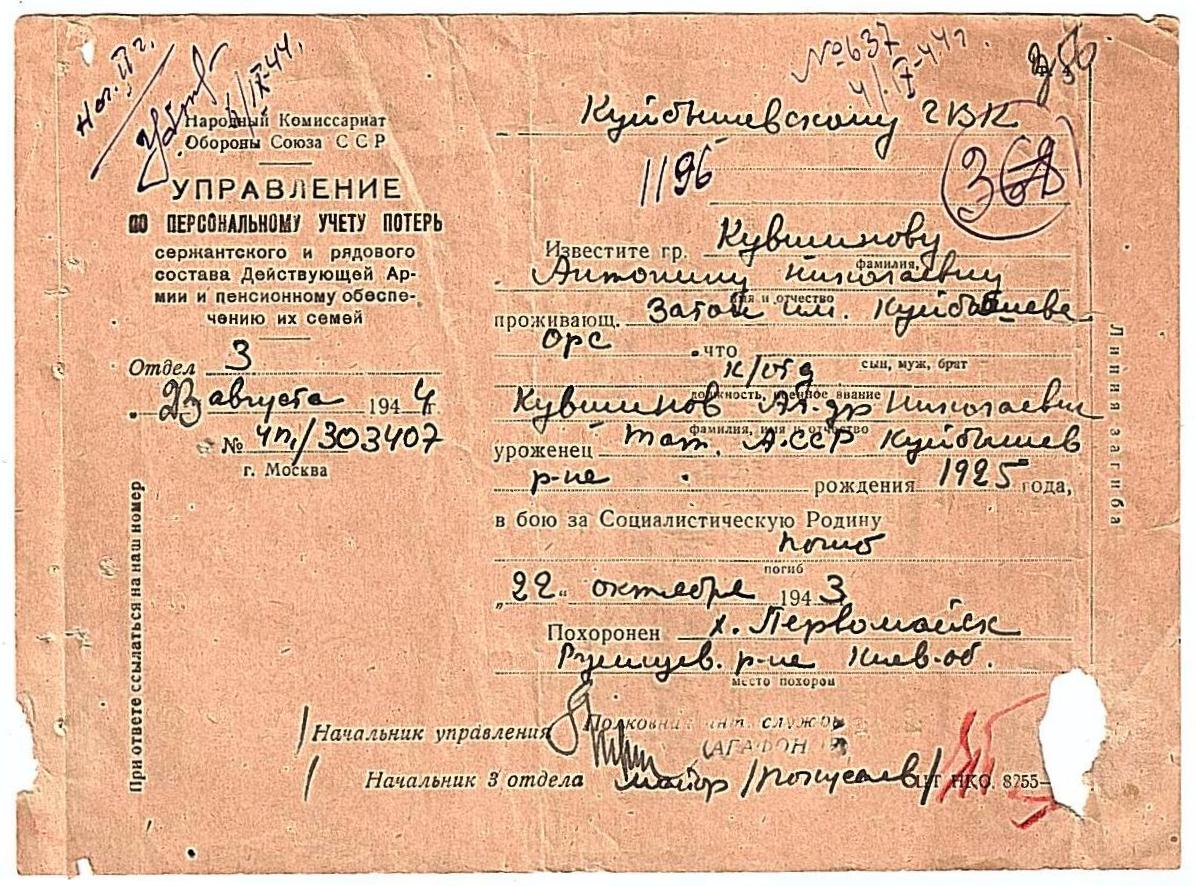 №637
4/IX-44г.
IX-44.
Народный Комиссариат
Обороны Союза ССР
УПРАВЛЕНИЕ
ПО ПЕРСОНАЛЬНОМУ УЧЕТУ ПОТЕРЬ
сержантского и рядового
состава Действующей Ар-
мии и пенсионному обеспе-
чению их семей
Отдел 3
23 августа 1944 г.
№ 4п/303407
г. Москва
При ответе ссылаться на наш номер
Куйбышевскому ГВК
1196
368
Известите гр. Кувшинову
фамилия,
Антонину Николаевну
имя и отчество
проживающ. Затон им. Куйбышева
орс что
сын, муж, брат
к/отд
должность, военное звание
Кувшинов Ал-др Николаевич
фамилия, имя и отчество
уроженец Тат. АССР Куйбышев
р-не рождения 1925 года,
в бою за Социалистическую Родину
погиб
погиб
„22“ октября 1943
Похоронен х. Первомайск
Ржищев. р-не Киев-об.
место похорон
Начальник управления Полковник инт. службы
(АГАФОНОВ)
Начальник 3 отдела майор
ЦТ НКО 8255—
Линия загиба